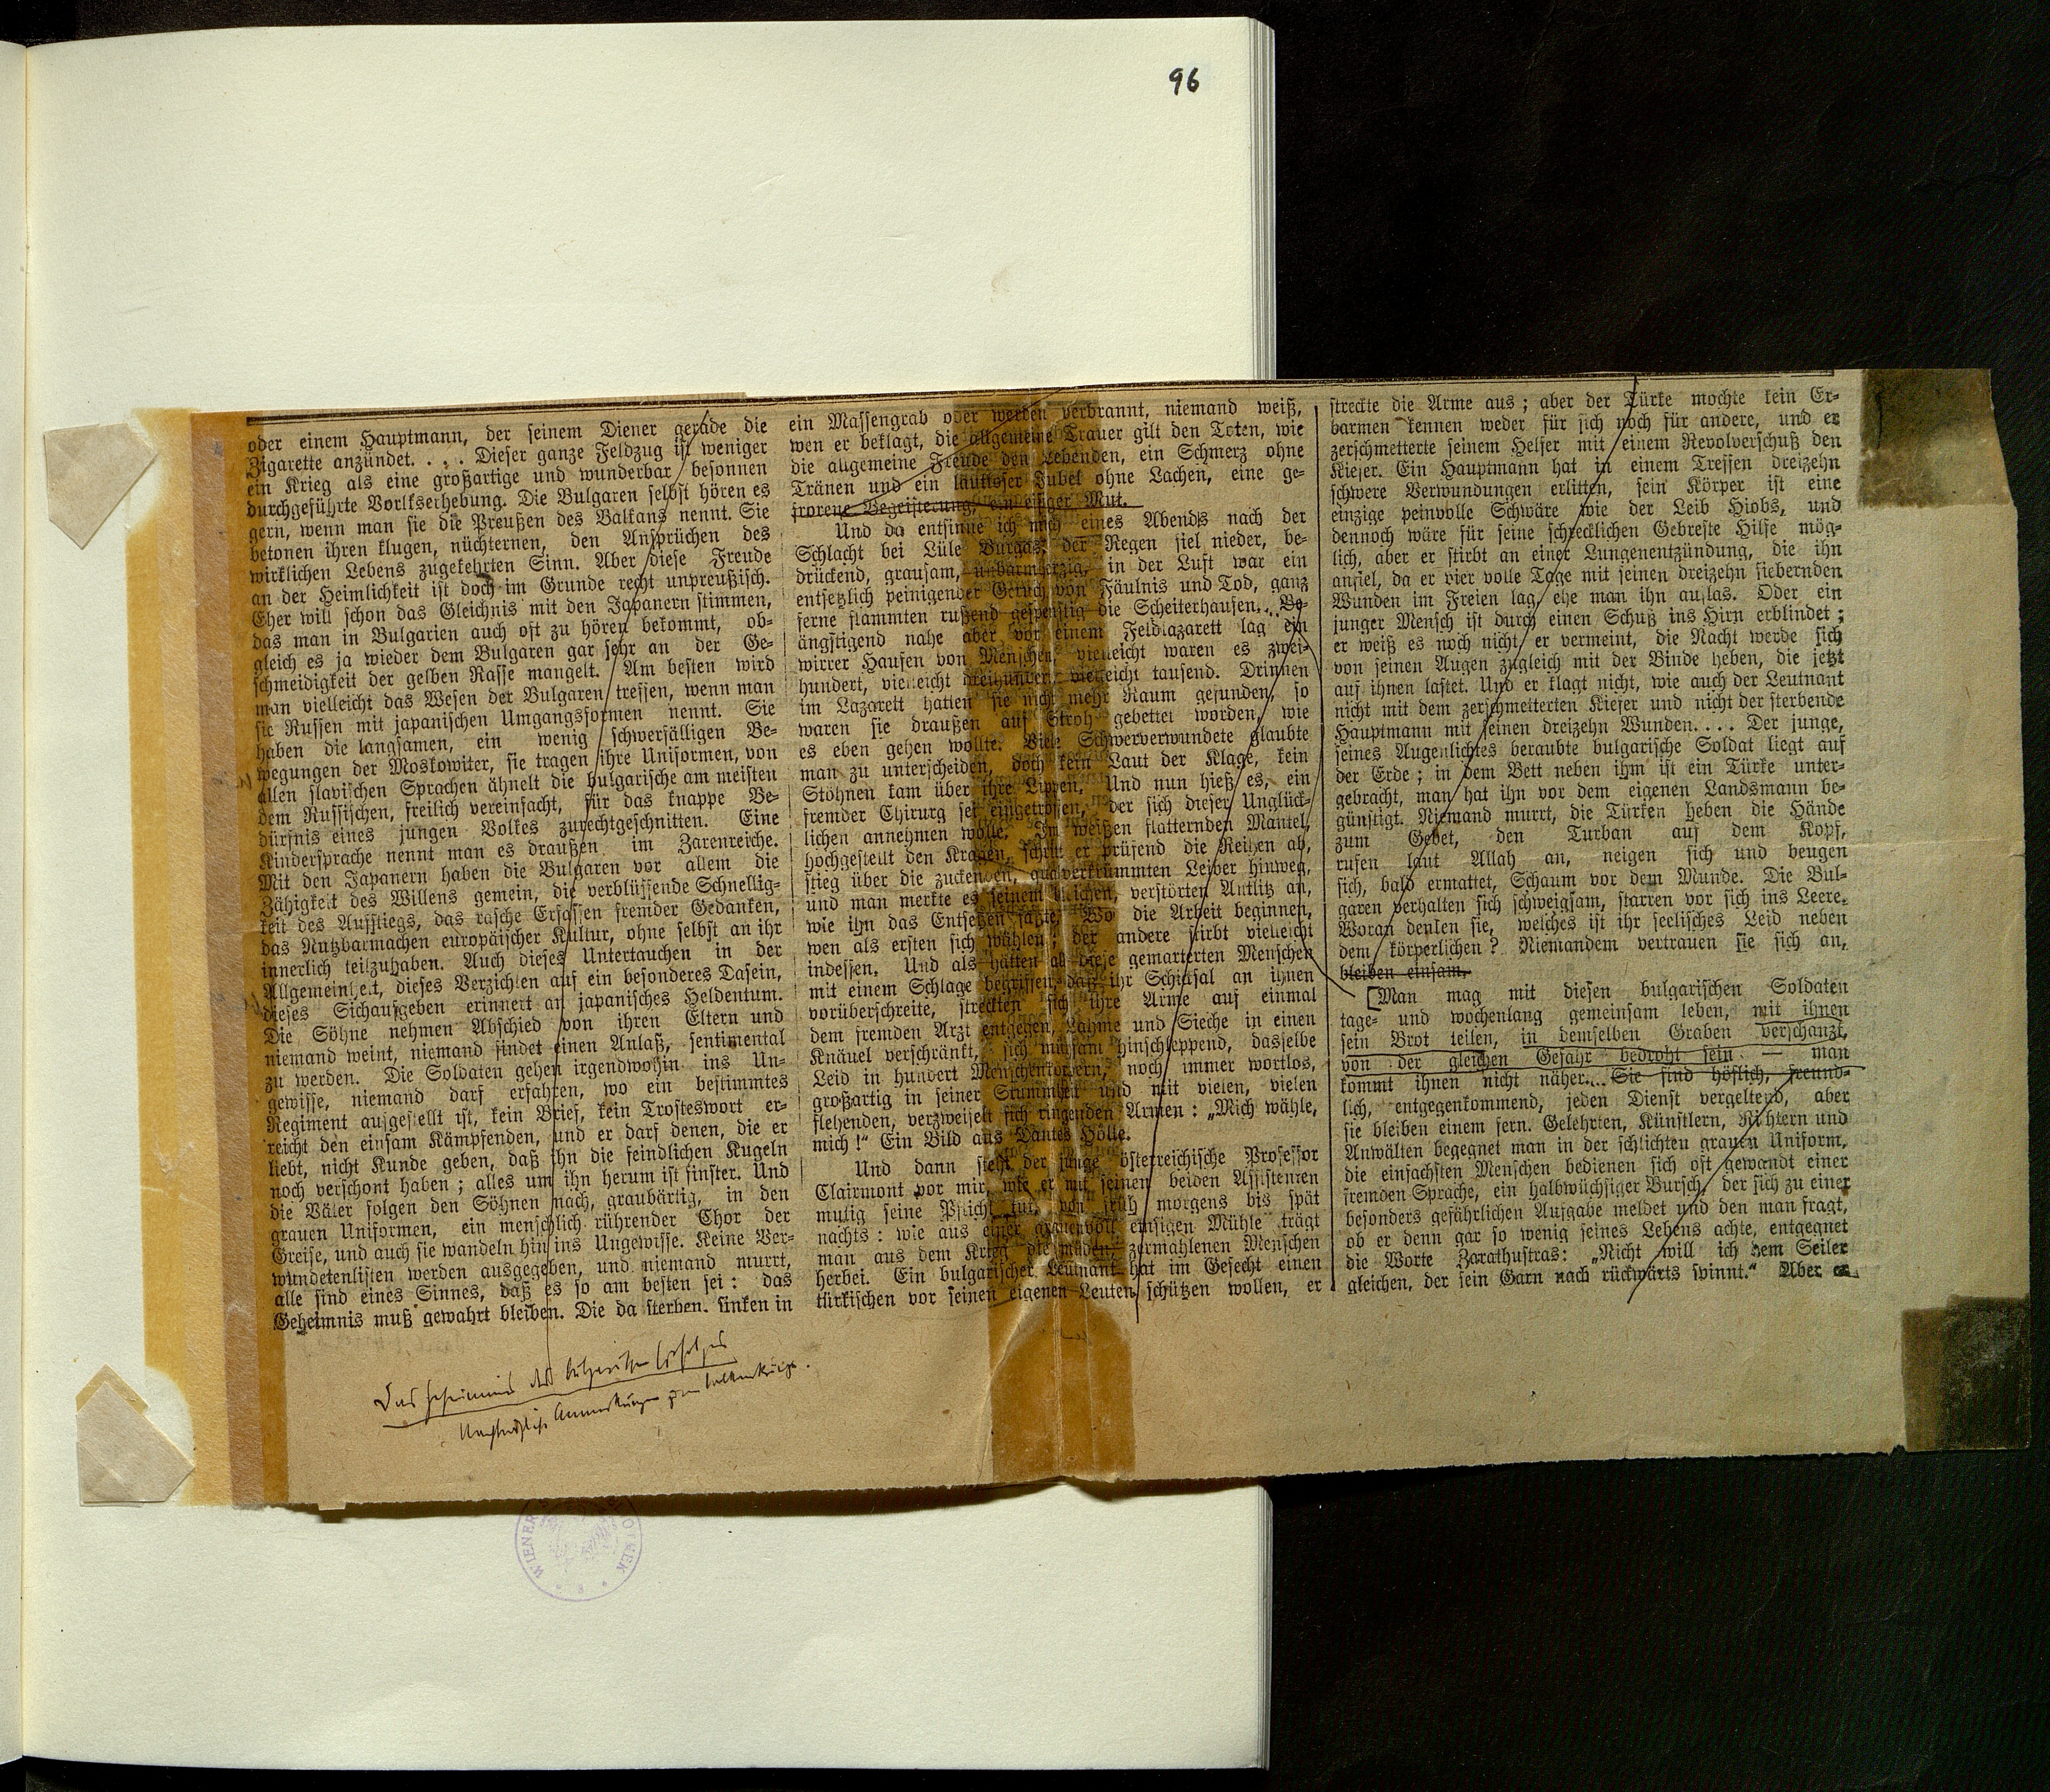 96
oder einem Hauptmann, der seinem Diener gerade die
Zigarette anzündet. . . . Dieser ganze Feldzug ist weniger
ein Krieg als eine großartige und wunderbar besonnen
durchgeführte Vorlkserhebung. Die Bulgaren selbst hören es
gern, wenn man sie die Preußen des Balkans nennt. Sie
betonen ihren klugen, nüchternen, den Ansprüchen des
wirklichen Lebens zugekehrten Sinn. Aber diese Freude
an der Heimlichkeit ist doch im Grunde recht unpreußisch.
Eher will schon das Gleichnis mit den Japanern stimmen,
das man in Bulgarien auch oft zu hören bekommt, ob-
gleich es ja wieder dem Bulgaren gar sehr an der Ge-
schmeidigkeit der gelben Rasse mangelt. Am besten wird
man vielleicht das Wesen der Bulgaren treffen, wenn man
sie Russen mit japanischen Umgangsformen nennt. Sie
haben die langsamen, ein wenig schwerfälligen Be-
wegungen der Moskowiter, sie tragen ihre Uniformen, von
allen slavischen Sprachen ähnelt die bulgarische am meisten
dem Russischen, freilich vereinfacht, für das knappe Be-
dürfnis eines jungen Volkes zurechtgeschnitten. Eine
Kindersprache nennt man es draußen im Zarenreiche.
Mit den Japanern haben die Bulgaren vor allem die
Zähigkeit des Willens gemein, die verblüffende Schnellig-
keit des Aufstiegs, das rasche Erfassen fremder Gedanken,
das Nutzbarmachen europäischer Kultur, ohne selbst an ihr
innerlich teilzuhaben. Auch dieses Untertauchen in der
Allgemeinheit, dieses Verzichten auf ein besonderes Dasein,
dieses Sichaufgeben erinnert an japanisches Heldentum.
Die Söhne nehmen Abschied von ihren Eltern und
niemand weint, niemand findet einen Anlaß, sentimental
zu werden. Die Soldaten gehen irgendwohin ins Un-
gewisse, niemand darf erfahren, wo ein bestimmtes
Regiment aufgestellt ist, kein Brief, kein Trosteswort er-
reicht den einsam Kämpfenden, und er darf denen, die er
liebt, nicht Kunde geben, daß ihn die feindlichen Kugeln
noch verschont haben; alles um ihn herum ist finster. Und
die Väter folgen den Söhnen nach, graubärtig, in den
grauen Uniformen, ein menschlich rührender Chor der
Greise, und auch sie wandeln hin ins Ungewisse. Keine Ver-
wundetenlisten werden ausgegeben, und niemand murrt,
alle sind eines Sinnes, daß es so am besten sei: das
Geheimnis muß gewahrt bleiben. Die da sterben, sinken in
ein Massengrab oder werden verbrannt, niemand weiß,
wen er beklagt, die allgemeine Trauer gilt den Toten, wie
die allgemeine Freude den Lebenden, ein Schmerz ohne
Tränen und ein lautloser Jubel ohne Lachen, eine ge-
frorene Begeisterung, ein eisiger Mut.
Und da entsinne ich mich eines Abends nach der
Schlacht bei Lüle Burgas, der Regen fiel nieder, be-
drückend, grausam, unbarmherzig, in der Luft war ein
entsetzlich peinigender Geruch von Fäulnis und Tod, ganz
ferne flammten rußend gespenstig die Scheiterhaufen. . . Be-
ängstigend nahe aber vor einem Feldlazarett lag ein
wirrer Haufen von Menschen, vielleicht waren es zwei-
hundert, vielleicht dreihundert, vielleicht tausend. Drinnen
im Lazarett hatten sie nicht mehr Raum gefunden, so
waren sie draußen auf Stroh gebettet worden, wie
es eben gehen wollte. Viele Schwerverwundete glaubte
man zu unterscheiden, doch kein Laut der Klage, kein
Stöhnen kam über ihre Lippen. Und nun hieß es, ein
fremder Chirurg sei eingetroffen, der sich dieser Unglück-
lichen annehmen wolle. Im weißen flatternden Mantel,
hochgestellt den Kragen, schritt er prüfend die Reihen ab,
stieg über die zuckenden, qualverkrümmten Leiber hinweg,
und man merkte es seinem bleichen, verstörten Antlitz an,
wie ihn das Entsetzen faßte. Wo die Arbeit beginnen,
wen als ersten sich wählen; der andere stirbt vielleicht
indessen. Und als hätten all diese gemarterten Menschen
mit einem Schlage begriffen, daß ihr Schicksal an ihnen
vorüberschreite, streckten sich ihre Arme auf einmal
dem fremden Arzt entgegen, Lahme und Sieche in einen
Knäuel verschränkt, sich mühsam hinschleppend, dasselbe
Leid in hundert Menschenkörpern, noch immer wortlos,
großartig in seiner Stummheit und mit vielen, vielen
flehenden, verzweifelt sich ringenden Armen: „Mich wähle,
mich!“ Ein Bild aus Dantes Hölle.
Und dann steht der junge österreichische Professor
Clairmont vor mir, wie er mit seinen beiden Assistenten
mutig seine Pflicht tut, von früh morgens bis spät
nachts: wie aus einer grauenvoll emsigen Mühle trägt
man aus dem Krieg die müden, zermahlenen Menschen
herbei. Ein bulgarischer Leutnant hat im Gefecht einen
türkischen vor seinen eigenen Leuten schützen wollen, er
streckte die Arme aus; aber der Türke mochte kein Er-
barmen kennen weder für sich noch für andere, und er
zerschmetterte seinem Helfer mit einem Revolverschuß den
Kiefer. Ein Hauptmann hat in einem Treffen dreizehn
schwere Verwundungen erlitten, sein Körper ist eine
einzige peinvolle Schwäre wie der Leib Hiobs, und
dennoch wäre für seine schrecklichen Gebreste Hilfe mög-
lich, aber er stirbt an einer Lungenentzündung, die ihn
anfiel, da er vier volle Tage mit seinen dreizehn fiebernden
Wunden im Freien lag, ehe man ihn auflas. Oder ein
junger Mensch ist durch einen Schuß ins Hirn erblindet;
er weiß es noch nicht, er vermeint, die Nacht werde sich
von seinen Augen zugleich mit der Binde heben, die jetzt
auf ihnen lastet. Und er klagt nicht, wie auch der Leutnant
nicht mit dem zerschmetterten Kiefer und nicht der sterbende
Hauptmann mit seinen dreizehn Wunden. . . . Der junge,
seines Augenlichtes beraubte bulgarische Soldat liegt auf
der Erde; in dem Bett neben ihm ist ein Türke unter-
gebracht, man hat ihn vor dem eigenen Landsmann be-
günstigt. Niemand murrt, die Türken heben die Hände
zum Gebet, den Turban auf dem Kopf,
rufen laut Allah an, neigen sich und beugen
sich, bald ermattet, Schaum vor dem Munde. Die Bul-
garen verhalten sich schweigsam, starren vor sich ins Leere.
Woran denken sie, welches ist ihr seelisches Leid neben
dem körperlichen? Niemandem vertrauen sie sich an,
bleiben einsam.
[Man mag mit diesen bulgarischen Soldaten
tage- und wochenlang gemeinsam leben, mit ihnen
sein Brot teilen, in demselben Graben verschanzt,
von der gleichen Gefahr bedroht sein — man
kommt ihnen nicht näher. . . Sie sind höflich, freund-
lich, entgegenkommend, jeden Dienst vergeltend, aber
sie bleiben einem fern. Gelehrten, Künstlern, Richtern und
Anwälten begegnet man in der schlichten grauen Uniform,
die einfachsten Menschen bedienen sich oft gewandt einer
fremden Sprache, ein halbwüchsiger Bursch, der sich zu einer
besonders gefährlichen Aufgabe meldet und den man fragt,
ob er denn gar so wenig seines Lebens achte, entgegnet
die Worte Zarathustras: „Nicht will ich dem Seiler
gleichen, der sein Garn nach rückwärts spinnt.“ Aber er
Das Geheimnis des bulgarischen Erfolges
Nachträgliche Anmerkungen zum Balkankriege.
WIENER